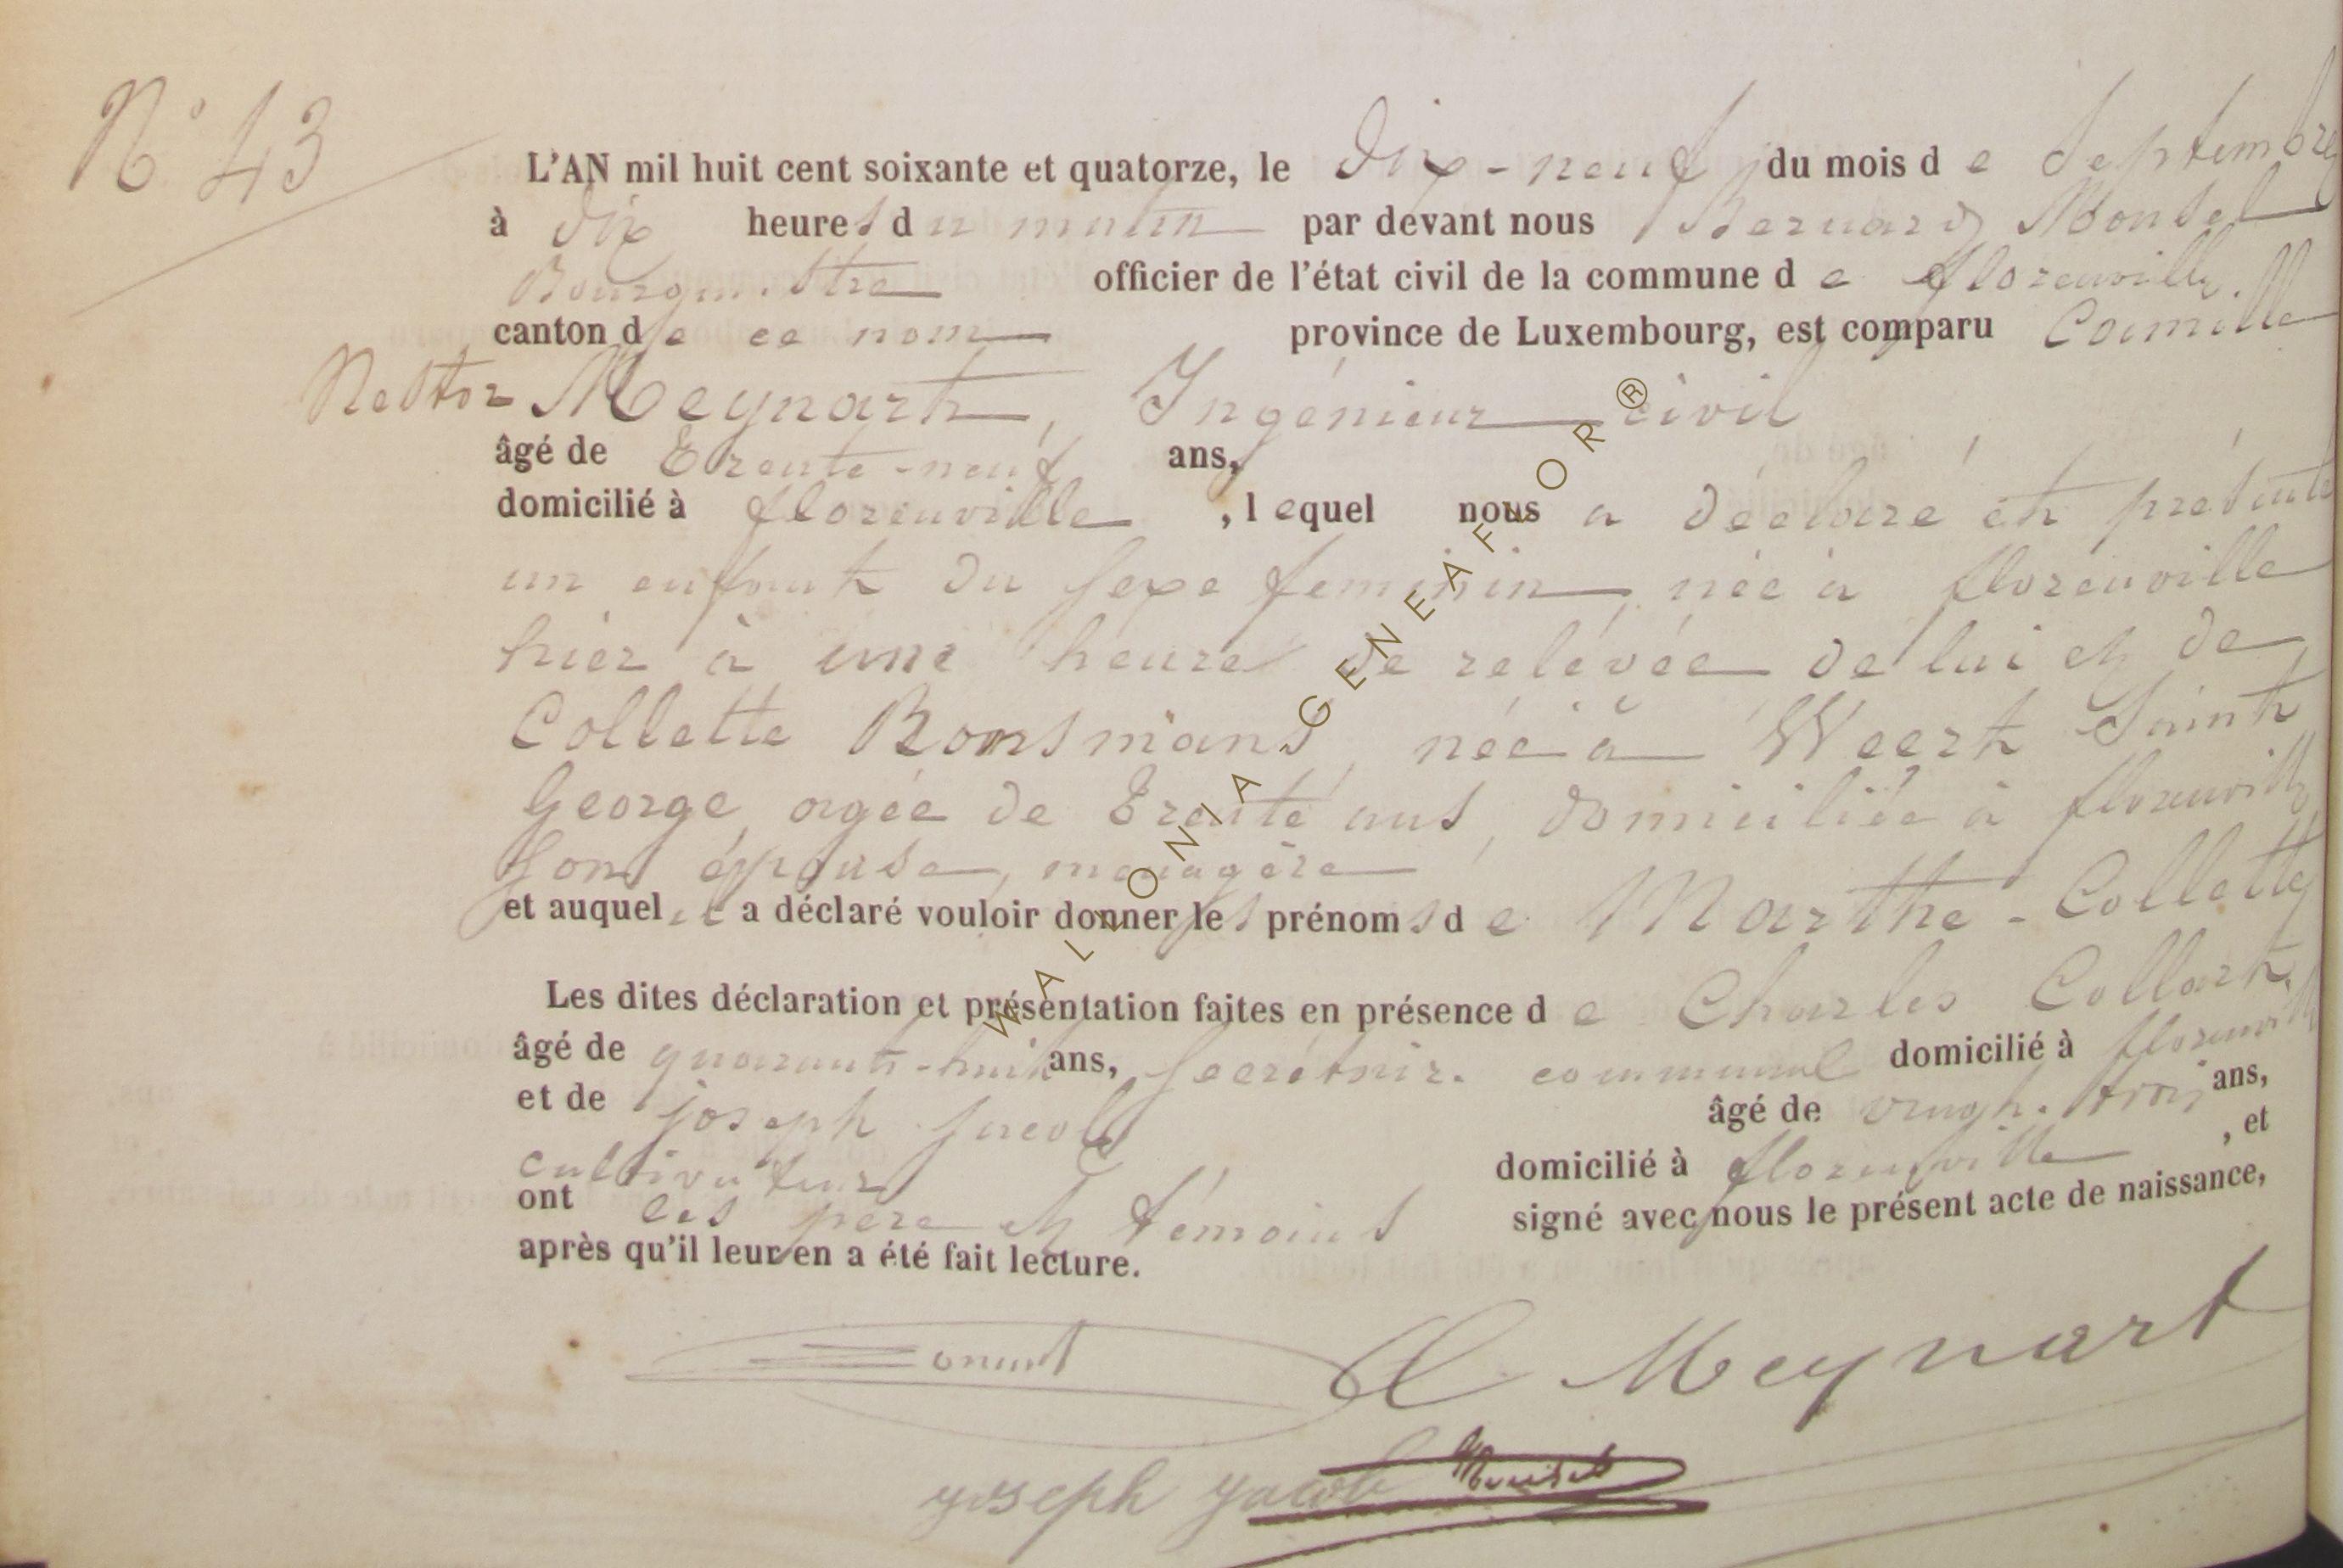 N° 43
L'AN mil huit cent soixante et quatorze, le dix-neuf du mois de Septembre
à dix heures du matin par devant nous Bernard Monsel
Bourgmestre officier de l'état civil de la commune de florenville
canton de ce nom province de Luxembourg, est comparu Camille
Nestor Meynart, Ingénieur civil
âgé de Trente-neuf ans,
domicilié à florenville, lequel nous a déclaré et présenté
un enfant du sexe feminin, née à florenville
hier à une heure de relevée de lui et de
Collette Bonsmans, née à Weert Saint
George, agée de Trente ans, domiciliée à florenville
son épouse, menagère
et auquel il a déclaré vouloir donner les prénoms de Marthe-Collette
Les dites déclaration et présentation faites en présence de Charles Collart
âgé de quarante-huit ans, secrétaire communal domicilié à florenville
et de joseph jacob âgé de vingt-trois ans,
cultivateur domicilié à florenville, et
ont les père et témoins signé avec nous le présent acte de naissance,
après qu'il leur en a été fait lecture.
C Meynart
joseph jacob Monsel
WALLONIA GENEAFOR ®